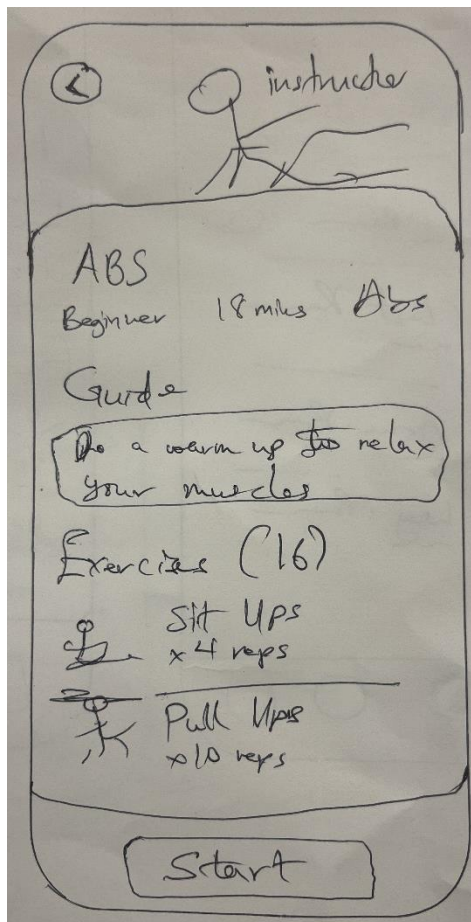 instructer
ABS
Beginner 18 mins Abs
Guide
Do a warm up to relax
your muscles
Exercises (16)
Sit Ups
x 4 reps
Pull Ups
x10 reps
Start